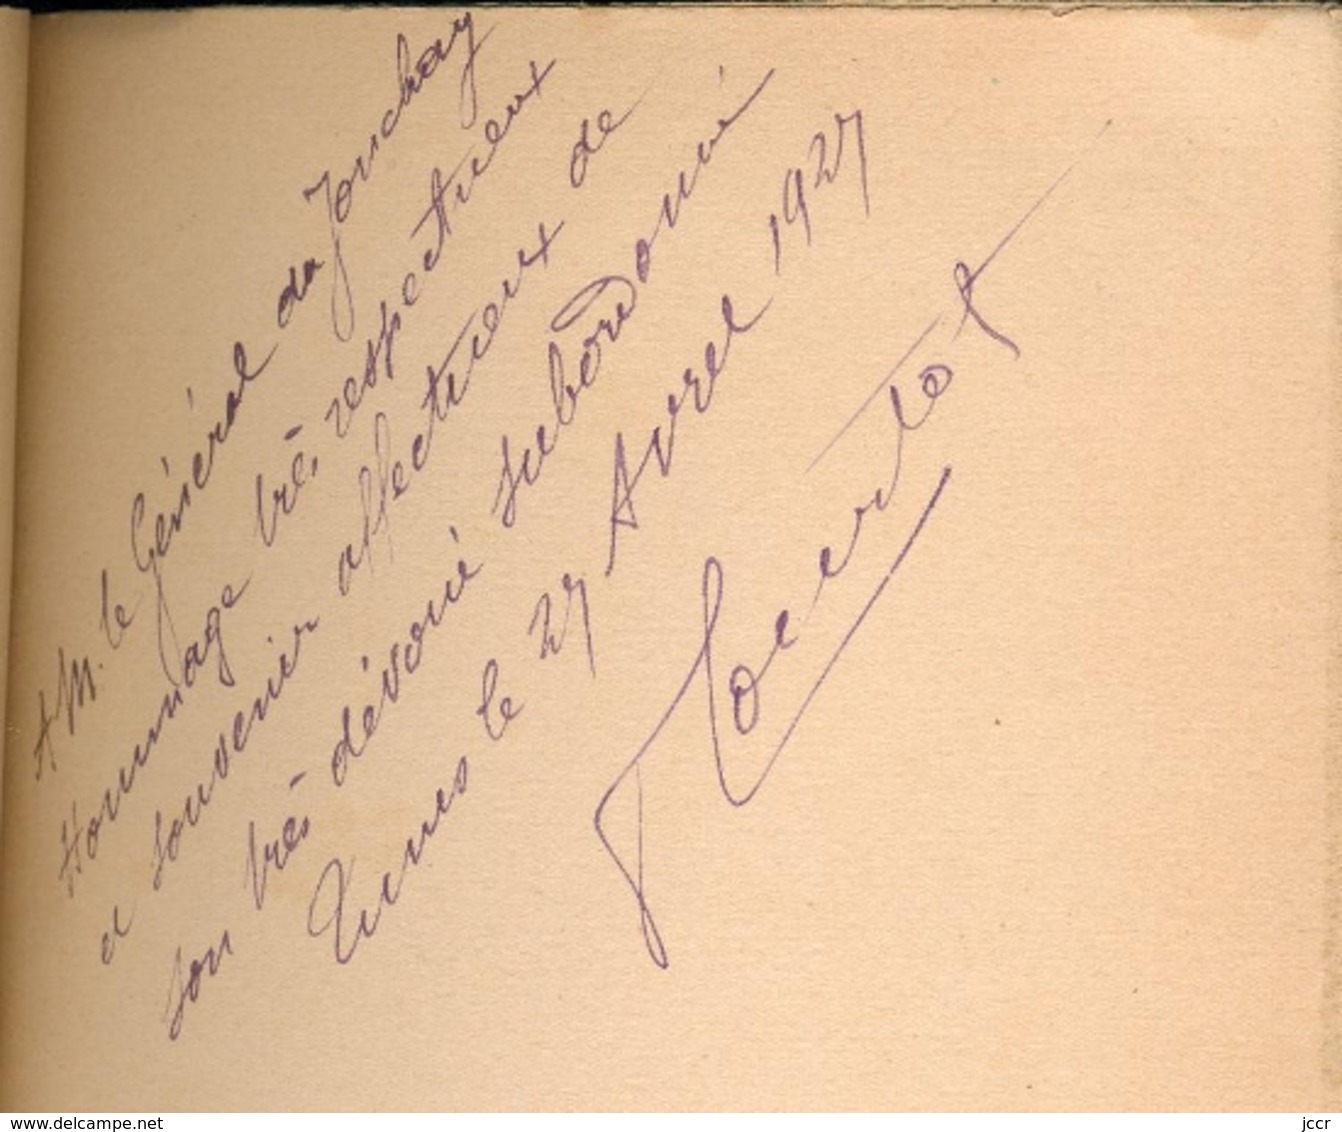 A M. le Général du Jonchay
Hommage très respectueux
et souvenir affectueux de
son très dévoué subordonné
Tunis le 27 Avril 1927
www.delcampe.net
jccr